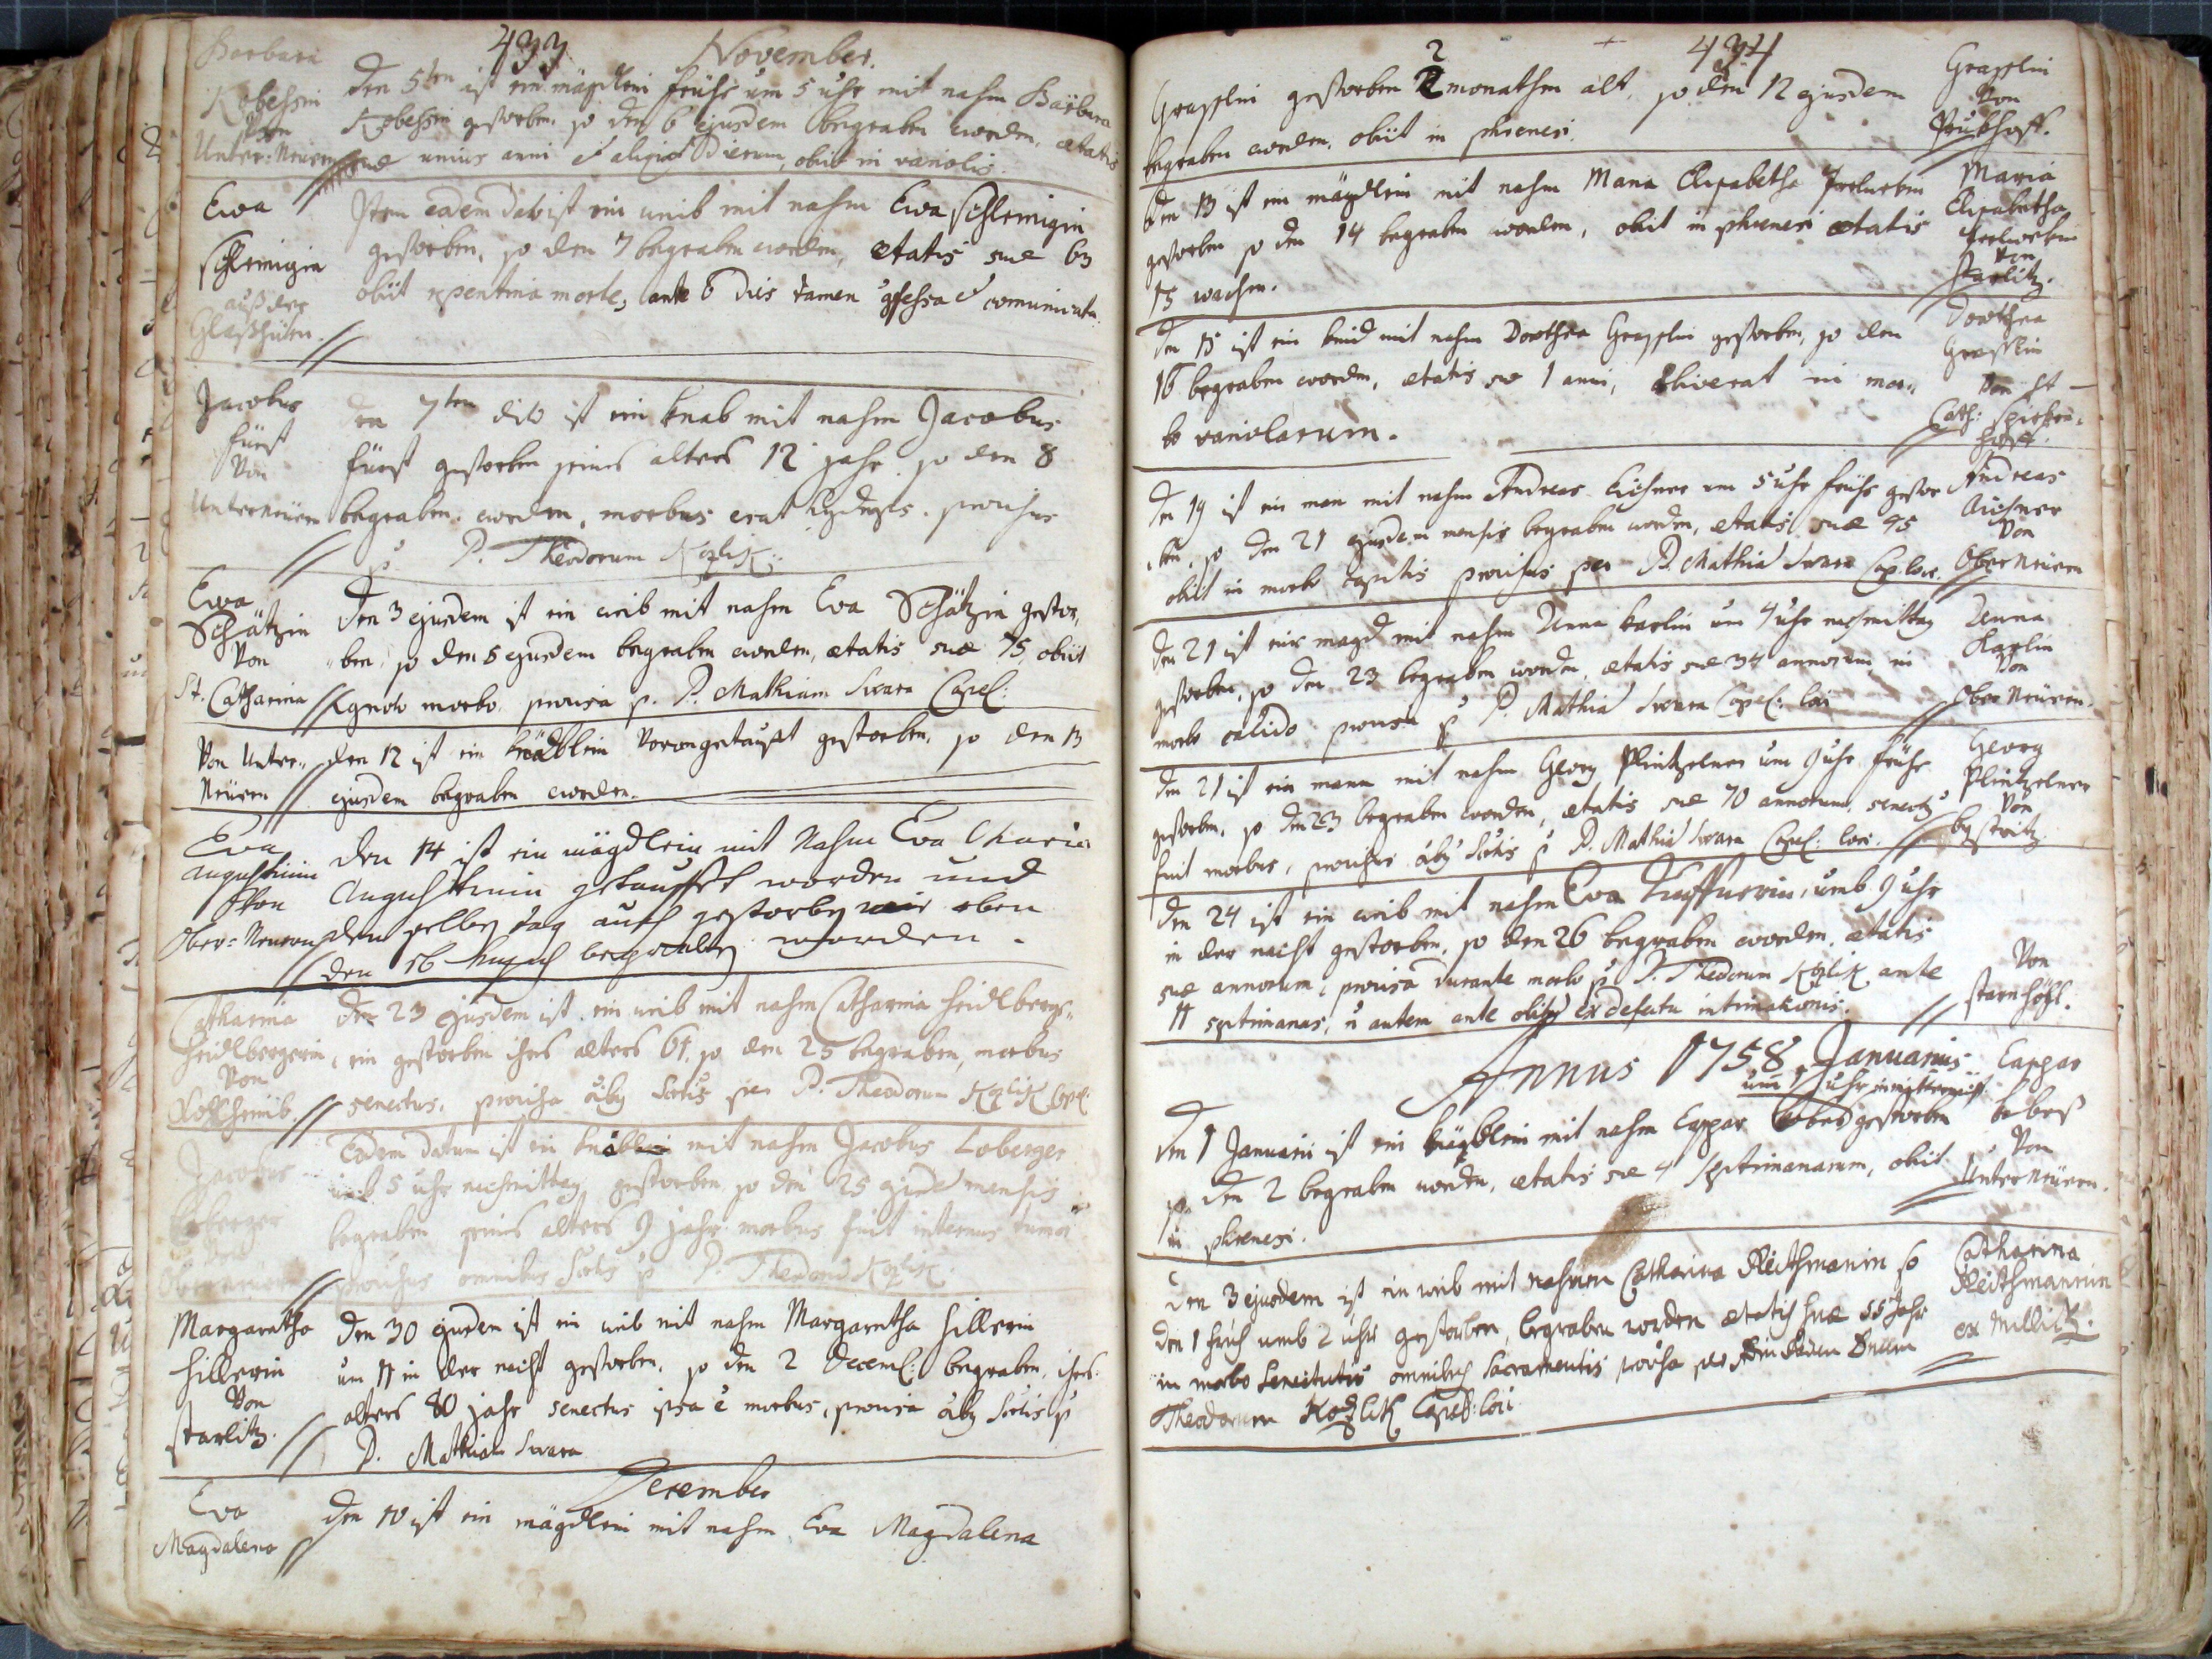 433 November.
Barbara
Kobessin
Von
Unter: Neüern
den 5ten ist ein mägdlein frühe um 5 uhr mit nahm Barbara
Kobessin gestorben, so den 6 ejusdem begraben worden, ætatis
suæ unius anni et aliquot Dierum, obiit in variolis.
Ewa
Schleinigin
auß der
Glaßhütten.
Item eadem dato ist ein weib mit nahm Ewa Schleinigin
gestorben, so den 7 begraben worden, ætatis suæ 63
obiit repentina morte, ante 6 dies tamen et comunicata
Jacobus
fürst
Von
Unterneüern
den 7ten dito ist ein knab mit nahm Jacobus
fürst gestorben seines alters 12 jahr so den 8
begraben worden, morbus erat hydrops. provisus
p P. Theodorum Kozlik.
Ewa
Schätzin
Von
St. Catharina
den 3 ejusdem ist ein weib mit nahm Eva Schätzin gestor„
„ben, so den 5 ejusdem begraben worden, ætatis suæ 75, obiit
ignoto morbo provisa p. P. Mathiam Swara Capel:
Von Unter„
Neüern
den 12 ist ein knäblein Vorangetaufft gestorben, so den 13
ejusdem begraben worden.
Eva
Augustinin
Von
Ober=Neuern
den 14 ist ein mägdlein mit Nahm Eva Maria
Augustinin getauffet worden und
den selben tag auch gestorben eben
den 16 begraben worden.
Catharina
Heidlbergerin
Von
den 23 ejusdem ist ein weib mit nahm Catharina Heidlberge„
rin gestorben ihres alters 61, so den 25 begraben, morbus
senectus, provisa oibus Sctis per P. Theodorum Kozlik Capel:
Jacobus
Loberger
Von
Oberneüern
Eodem datum ist ein knäblein mit nahm Jacobus Loberger
umb 5 uhr nachmittag gestorben so den 25 ejusdem mensis
begraben seines alters 9 jahr morbus fuit internus tumor
provisus omnibus Sctis p P. Theodorum Kozlik
Margaretha
Hillerin
Von
starlitz.
den 30 ejusdem ist ein weib mit nahm Margaretha Hillerin
um 11 in der nacht gestorben, so den 2 Decemb: begraben, ihres
alters 80 jahr senectus ipsa e morbus, provisa oibus Sctis p
P. Mathiam Swara
December
Eva
Magdalena
den 10 ist ein mägdlein mit nahm Eva Magdalena
434
Grasslin
Von
Grasslin gestorben 2 monathen alt, so den 12 ejusdem
begraben worden, obiit in phrenesi.
Maria
Elisabetha
Von
starlitz.
den 13 ist ein mägdlein mit nahm Maria Elisabetha
gestorben so den 14 begraben worden, obiit in phrenesi ætatis
15 wochen.
Dorothea
Grasslin
Von St
Cath:
hoff.
den 15 ist ein kind mit nahm Dorothea Grasslin gestorben, so den
16 begraben worden, ætatis suæ 1 anni, obiverat in mor„
bo variolarum.
Andreas
Aichner
Von
Oberneüern
den 19 ist ein man mit nahm Andreas Eichner um 5 uhr frühe gestor
„ben, so den 21 ejusdem mensis begraben worden, ætatis suæ 45
obiit in morbo capitis provisus per P. Mathia Swara Cap. loci.
Anna
Karlin
Von
Ober Neüern.
den 21 ist eine magd mit nahm Anna Karlin um 4 uhr nachmittag
gestorben, so den 23 begraben worden, ætatis suæ 34 annorum, in
morbo calido provisa p P. Mathia Swara Capel: loci
Georg
Plintzelner
Von
bystritz.
den 21 ist ein mann mit nahm Georg Plintzelner um 9 uhr frühe
gestorben, so den 23 begraben worden, ætatis suæ 70 annorum, senectus
fuit morbus, provisus oibus Sctis p P. Mathia Swara Capel: loci.
Von
starnhöfl.
den 24 ist ein weib mit nahm Eva umb 9 uhr
in der nacht gestorben, so den 26 begraben worden, ætatis
suæ annorum, provisa durante morbo p P. Theodorum Kozlik ante
11 septimanas, autem ante obitum ex defectu intimationis.
Annus 1758, Januarius
Caspar
Von
Unterneüern.
um uhr
den 1 Januarii ist ein knäblein mit nahm Caspar gestorben
so den 2 begraben worden, ætatis suæ 4 septimanarum, obiit
in phrenesi.
Catharina
Reithmannin
ex Millick.
den 3 ejusdem ist ein weib mit nahmen Catharina Reithmanin so
den 1 früh umb 2 uhr gestorben, begraben worden ætatis suæ 55 jahr
in morbo senectutis omnibus Sacramentis provisa per
Theodorum Kozlik Capel: loci.